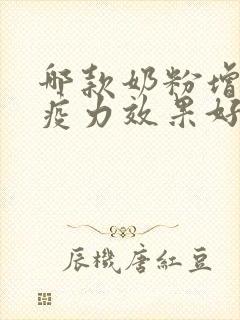 哪款奶粉增
疫力效果好
辰機唐紅豆